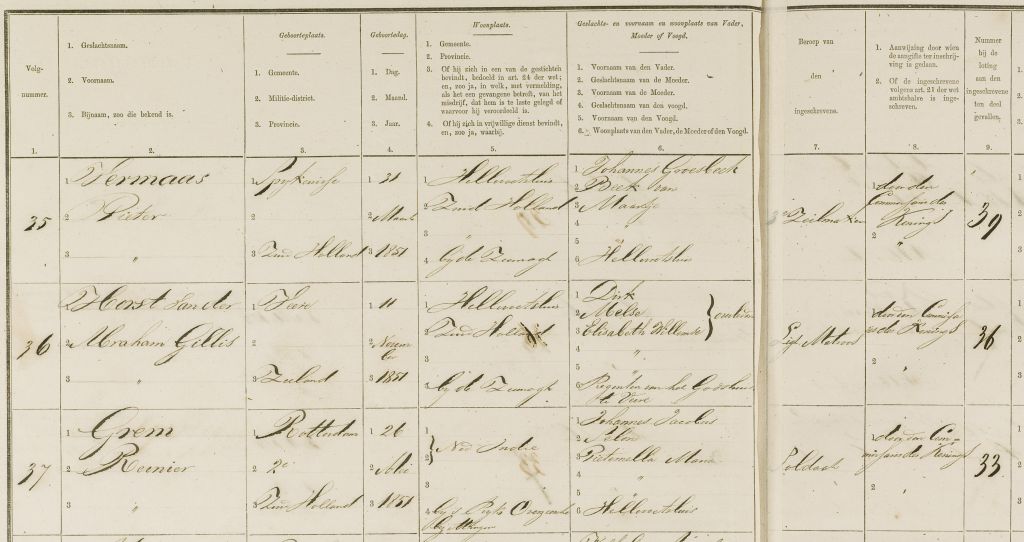 Volg-
nummer.
1.
1. Geslachtsnaam.
2. Voornaam.
3. Bijnaam, zoo die bekend is.
2.
Geboorteplaats.
1. Gemeente.
2. Militie-district.
3. Provincie.
3.
Geboortedag.
1. Dag.
2. Maand.
3. Jaar.
4.
Woonplaats.
1. Gemeente.
2. Provincie.
3. Of hij zich in een van de gestichten
bevindt, bedoeld in art. 24 der wet;
en, zoo ja, in welk, met vermelding,
als het een gevangene betreft, van het
misdrijf, dat hem is te laste gelegd of
waarvoor hij veroordeeld is.
4. Of hij zich in vrijwillige dienst bevindt,
en, zoo ja, waarbij.
5.
Geslachts- en voornaam en woonplaats van Vader,
Moeder of Voogd.
1. Voornaam van den Vader.
2. Geslachtsnaam van de Moeder.
3. Voornaam van de Moeder.
4. Geslachtsnaam van den voogd.
5. Voornaam van den Voogd.
6. Woonplaats van den Vader, de Moeder of den Voogd.
6.
Beroep van
den
ingeschrevene.
7.
1. Aanwijzing door wien
de aangifte ter inschrij-
ving is gedaan.
2. Of de ingeschrevene
volgens art. 21 der wet
ambtshalve is inge-
schreven.
8.
Nummer
bij de
loting
aan den
ingeschrevene
ten deel
gevallen.
9.
35
1 Vermaas
2 Pieter
3 "
1
2
3 Zuid Holland
1 31
2 Maart
3 1851
1 Hellevoetsluis
2 Zuid Holland
3
4 bij de Zeemagt
1 Johannes Groesbeek
2 Beek van
3 Maartje
4 "
5 "
6 Hellevoetsluis
Zeilmaker
1 door den
Commissaris des
Konings
2 "
39
36
1 Horst van der
2 Abraham Gillis
3 "
1 Veere
2
3 Zeeland
1 11
2 Novem
ber
3 1851
1 Hellevoetsluis
2 Zuid Holland
3
4 bij de Zeemagt
1 Dirk
2 Melse
3 Elisabeth Willemse
4 "
5 "
6 Regenten van het Godshuis
te Veere
Matroos
1 door den Commissa
ris des Konings
2 "
36
37
1 Grem
2 Reinier
3 "
1 Rotterdam
2 2e
3 Zuid Holland
1 26
2 Mei
3 1851
1
2 Ned Indie
3
4
1 Johannes Jacobus
2
3 Pieternella Maria
4 "
5 "
6 Hellevoetsluis
Soldaat
1 door den Com-
missaris des Konings
2 "
33